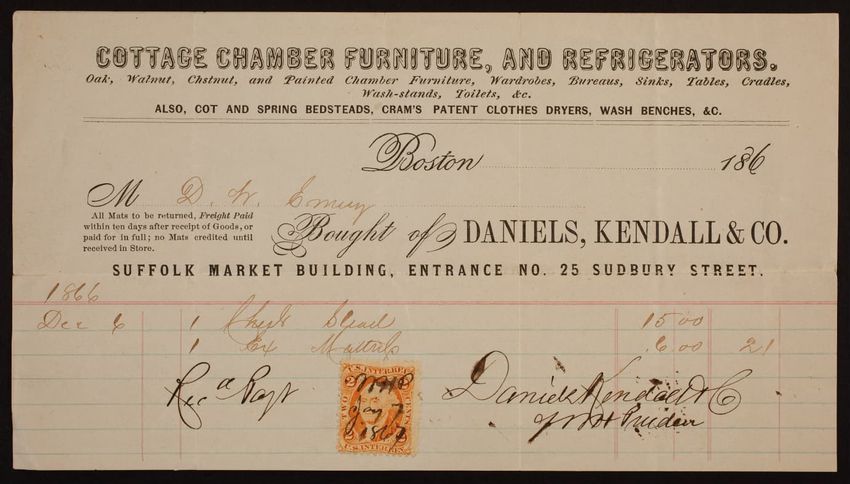 COTTAGE CHAMBER FURNITURE, AND REFRIGERATORS.
Oak, Walnut, Chstnut, and Painted Chamber Furniture, Wardrobes, Bureaus, Sinks, Tables, Cradles,
Wash-stands, Toilets, &c.
ALSO, COT AND SPRING BEDSTEADS, CRAM'S PATENT CLOTHES DRYERS, WASH BENCHES, &C.
Boston 186
M D. W. Emery
All Mats to be returned, Freight Paid
within ten days after receipt of Goods, or
paid for in full; no Mats credited until
received in Store.
Bought of DANIELS, KENDALL & CO.
SUFFOLK MARKET BUILDING, ENTRANCE NO. 25 SUDBURY STREET.
1866
Dec 6 1 15 00
1 Ex 6.00 21
Rec'd Payt
U.S. INTER. REV.
TWO CENTS
Jany 7
1867
U.S. INTER. REV.
Daniels Kendall & Co